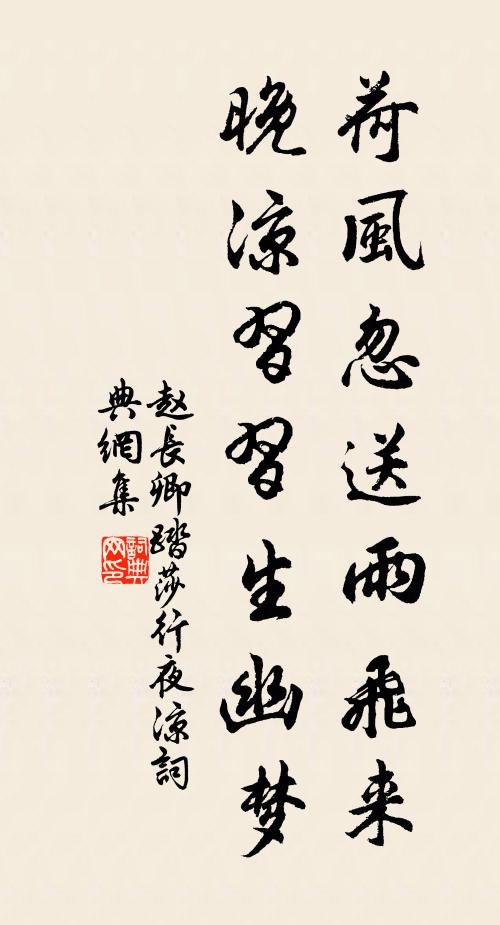 荷風忽送雨飛来
晚凉習習生幽梦
赵長卿踏莎行夜凉詞
典網集
詞典网印